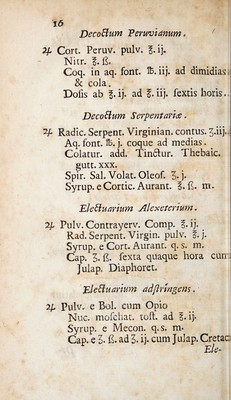 16
Decoctum Peruvianum.
℞ Cort. Peruv. pulv. ℥. ij.
Nitr. ℥. ß.
Coq. in aq. font. ℔. iij. ad dimidias
& cola.
Dosis ab ℥. ij. ad ℥. iij. sextis horis.
Decoctum Serpentariæ.
℞ Radic. Serpent. Virginian. contus. ʒ.iij.
Aq. font. ℔. j. coque ad medias.
Colatur. add. Tinctur. Thebaic.
gutt. xxx.
Spir. Sal. Volat. Oleos. ʒ. j.
Syrup. e Cortic. Aurant. ℥. ß. m.
Electuarium Alexeterium.
℞ Pulv. Contrayerv. Comp. ℥. ij.
Rad. Serpent. Virgin. pulv. ℥. j.
Syrup. e Cort. Aurant. q. s. m.
Cap. ʒ. ß. sexta quaque hora cum
Julap. Diaphoret.
Electuarium adstringens.
℞ Pulv. e Bol. cum Opio
Nuc. moschat. tost. ad ℥. ij.
Syrup. e Mecon. q. s. m.
Cap. e ʒ. ß. ad ʒ. ij. cum Julap. Cretac
Ele-